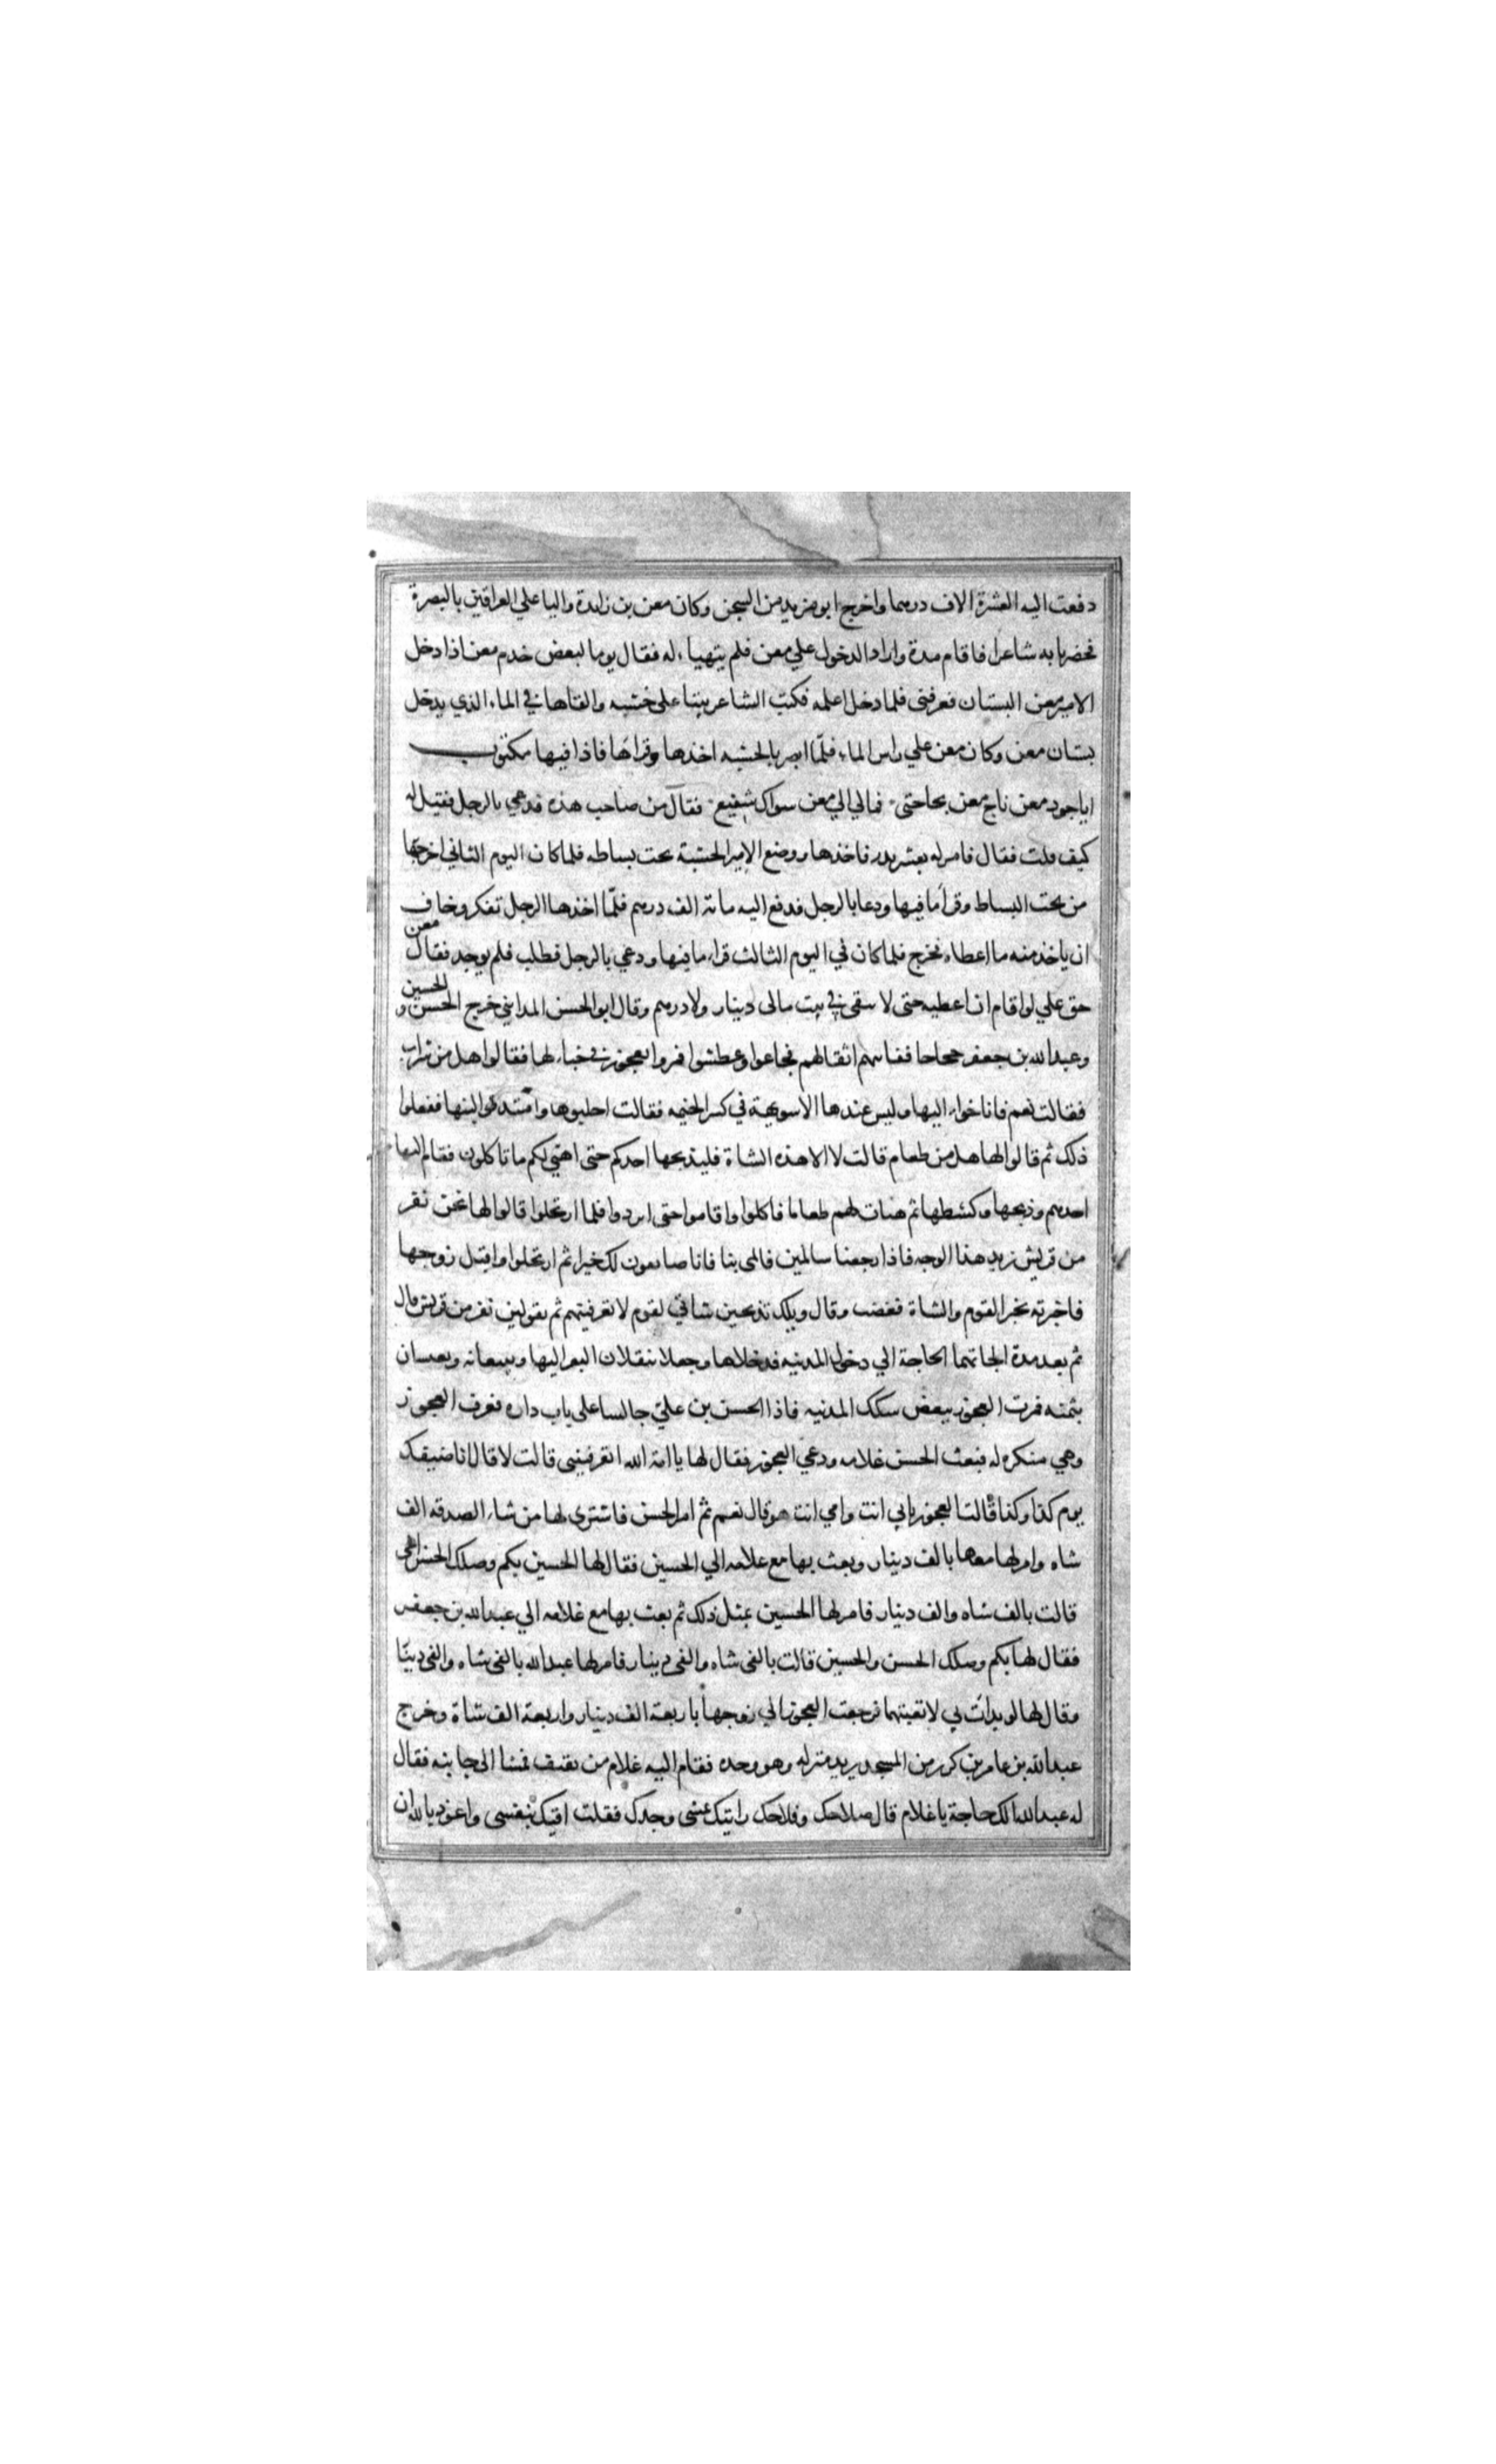 دفعت اليه العشرة الاف درهما واخرج ابو مزيد من السجن وكان معن بن زايدة واليا علي العراقين بالبصرة
فحضر بابه شاعر فاقام مدة واراد الدخول علي معن فلم يتهياء له فقال يوما لبعض خدم معن اذا دخل
الامير معن البستان فعرفني فلما دخل اعلمه فكتب الشاعر بيتا على خشبه والقاها في الماء الذي يدخل
بستان معن وكان معن علي راس الماء فلمّا ابصر بالخشبه اخذها وقراها فاذا فيها مكتوب
ايا جود معن ناج معن بحاجتي فمالي الي معن سواك شفيع فقال من صاحب هذه فدعي بالرجل فقيل له
كيف قلت فقال فامر له بعشر بدر فاخذها ووضع الامير الخشبة تحت بساطه فلما كان اليوم الثاني اخرجها
من تحت البساط وقرأ ما فيها ودعا بالرجل فدفع اليه مائة الف درهم فلمّا اخذها الرجل تفكر وخاف
ان ياخذ منه ما اعطاه فخرج فلما كان في اليوم الثالث قراء ما فيها ودعي بالرجل فطلب فلم يوجد فقال معن
حق علي لو اقام ان اعطيه حتى لا يبقى في بيت مالى دينار ولا درهم وقال ابو الحسن المدايني خرج الحسن والحسين
وعبد الله بن جعفر حجاجا ففاتهم اثقالهم فجاعوا وعطشوا فمروا بعجوز في خباء لها فقالوا هل من شراب
فقالت نعم فاناخوا اليها وليس عندها الا سويهة في كسر الخيمه فقالت احلبوها وامتذقوا لبنها ففعلوا
ذلك ثم قالوا لها هل من طعام قالت لا الا هذه الشاة فليذبحها احدكم حتى اهيي لكم ما تاكلون فقام اليها
احدهم وذبحها وكشطها ثم هيات لهم طعاما فاكلوا واقاموا حتى ابردوا فلما ارتحلوا قالوا لها نحن نفر
من قريش نريد هذا الوجه فاذا رجعنا سالمين فالمي بنا فانا صانعون لك خيرا ثم ارتحلوا واقبل زوجها
فاخبرته بخبر القوم والشاة فغضب وقال ويلك تذبحين شاتي لقوم لا تعرفينهم ثم تقولين نفر من قريش قال
ثم بعد مدة الجاتهما الحاجة الي دخول المدينه فدخلاها وجعلا ينقلان البعر اليها ويبيعانه ويعيسان
بثمنه فمرت العجوز ببعض سكك المدينه فاذا الحسن بن عليّ جالسا على باب داره فعرف العجوز
وهي منكره له فبعث الحسن غلامه ودعي العجوز فقال لها يا امة الله اتعرفينى قالت لا قال انا ضيفك
يوم كذا وكذا قالت العجوز بابي انت وامي انت هو قال نعم ثم امر الحسن فاشترى لها من شاء الصدقه الف
شاه وامر لها معها بالف دينار وبعث بها مع غلامه الي الحسين فقال لها الحسين بكم وصلك الحسن اخى
قالت بالف شاه والف دينار فامر لها الحسين بمثل ذلك ثم بعث بها مع غلامه الي عبد الله بن جعفر
فقال لها بكم وصلك الحسن والحسين قالت بالفى شاه والفى دينار فامر لها عبد الله بالفى شاه والفى دينا
وقال لها لو بدات بي لاتعبتهما فرجعت العجوز الي زوجها باربعة الف دينار واربعة الف شاة وخرج
عبد الله بن عامر بن كريز من المسجد يريد منزله وهو وحده فقام اليه غلام من ثقيف فمشا الى جانبه فقال
له عبد الله الك حاجة يا غلام قال صلاحك وفلاحك رايتك تمشى وحدك فقلت اقيك بنفسي واعوذ بالله ان